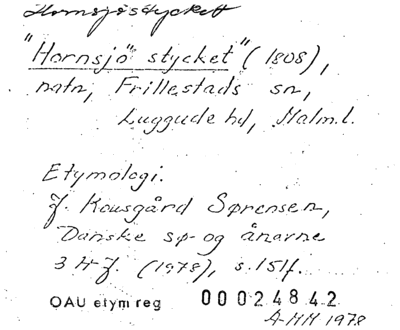 Hornsjöstycket
"Hornsjö stycket" (1808),
natn, Frillestads sn,
Luggude hd, Malm.l.
Etymologi.
J. Kousgård Sørensen,
Danske sø- og ånavne
3 H-J. (1978), s. 151f.
OAU etym reg 00024842
AMH 1978